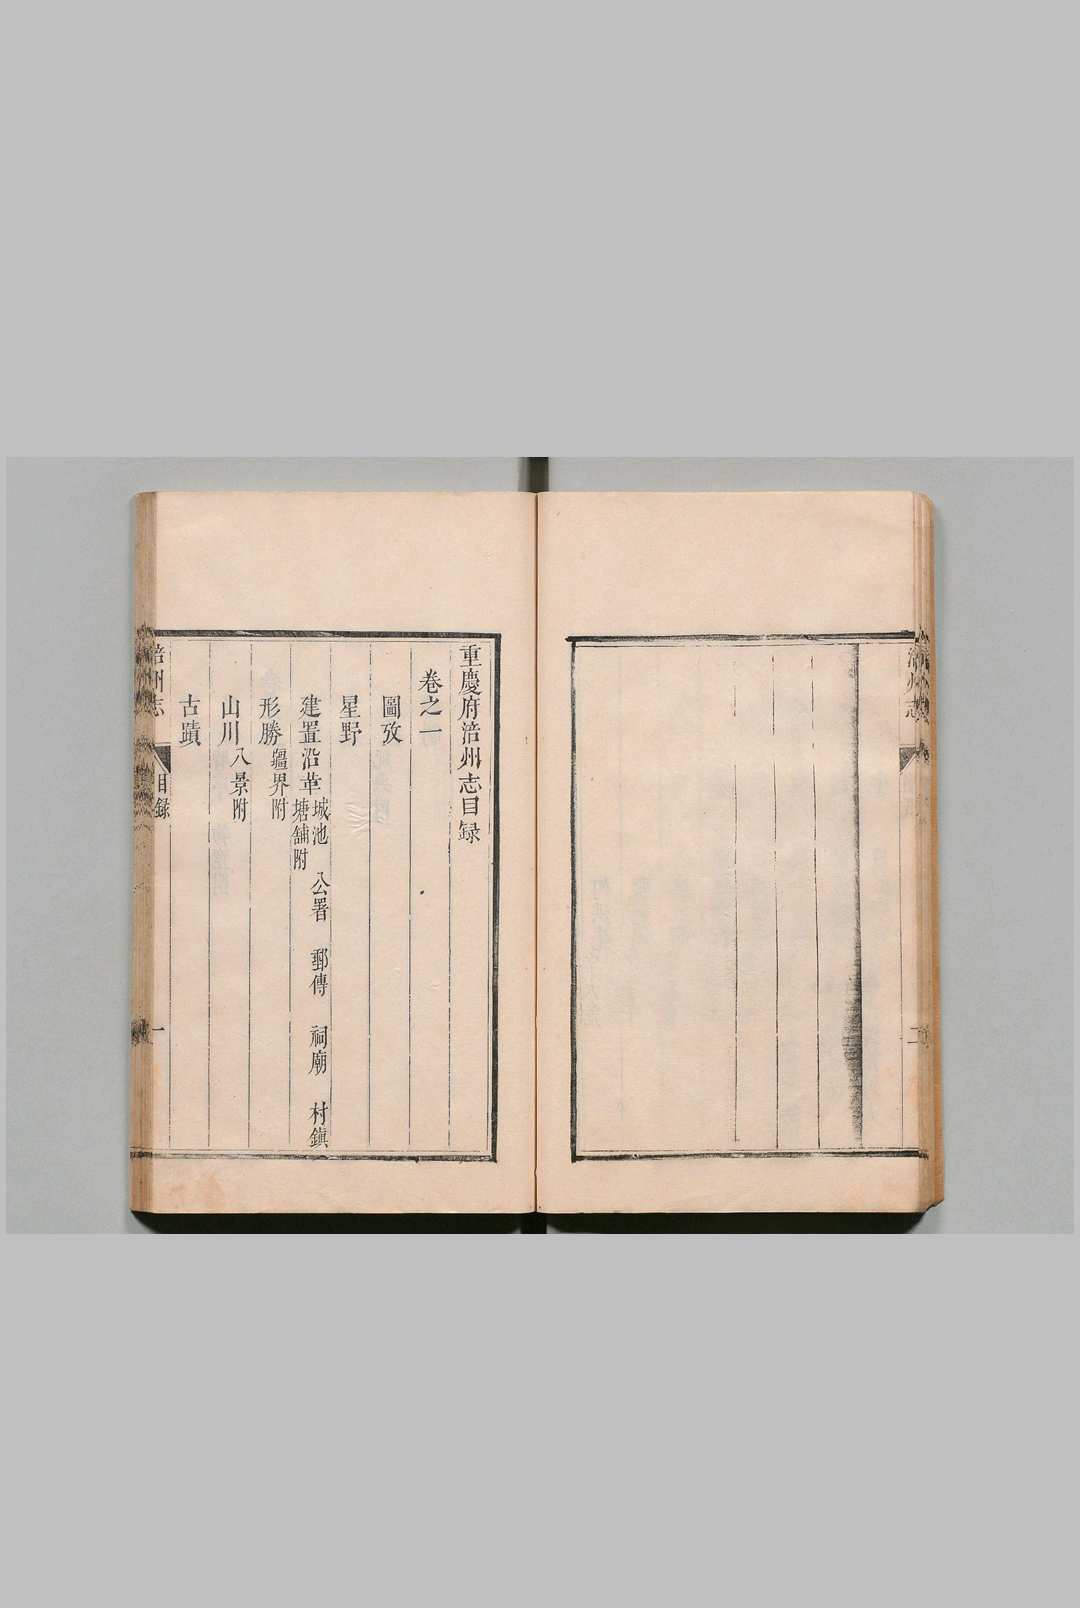 志
二
重慶府涪州志目録
卷之一
圖攷
星野
建置沿革城池 公署 郵傳 祠廟 村鎮
塘舖附
形勝疆界附
山川八景附
古蹟
涪州志
目録
一